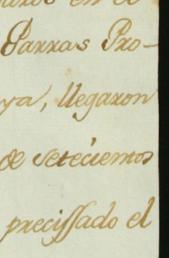 en el
Parras Pro-
ya, llegaron
de setecientos
precissado el